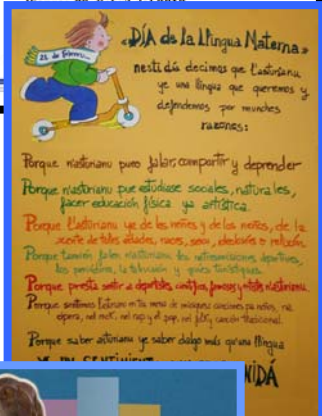 «DÍA de la Llingua Materna»
21 de febreru...
nesti día decimos que l'asturianu
ye una llingua que queremos y
defendemos por munches
razones:
Porque n'asturianu pueo falar, compartir y deprender
Porque n'asturianu pue estudiase sociales, naturales,
facer educación física ya artística.
Porque l'asturianu ye de los neños y de les neñes, de la
xente de toles edades, races, sexu, ideoloxíes o relixón.
Porque tamién falen n'asturianu los retransmisiones deportives,
los periódicos, la televisión y guíes turístiques.
Porque presta sentir a deportistes, cantantes, famosos y misses n'asturianu.
Porque sentimos l'asturianu en la mesa de mezcles canciones pa neños, na
ópera, nel rock, nel rap y el pop, nel folk y canción tradicional.
Porque saber asturianu ye saber daqué más qu'una llingua
YE UN SENTIMIENT
NIDÁ